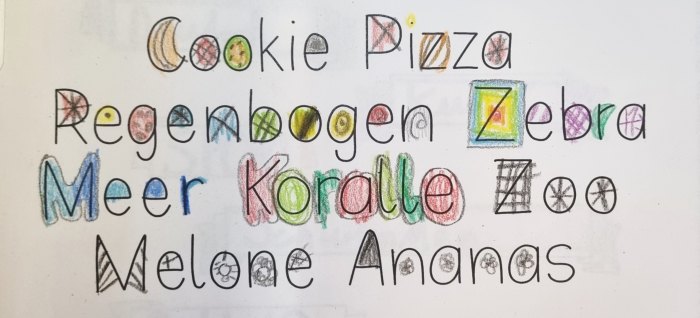 Cookie Pizza
Regenbogen Zebra
Meer Koralle Zoo
Melone Ananas